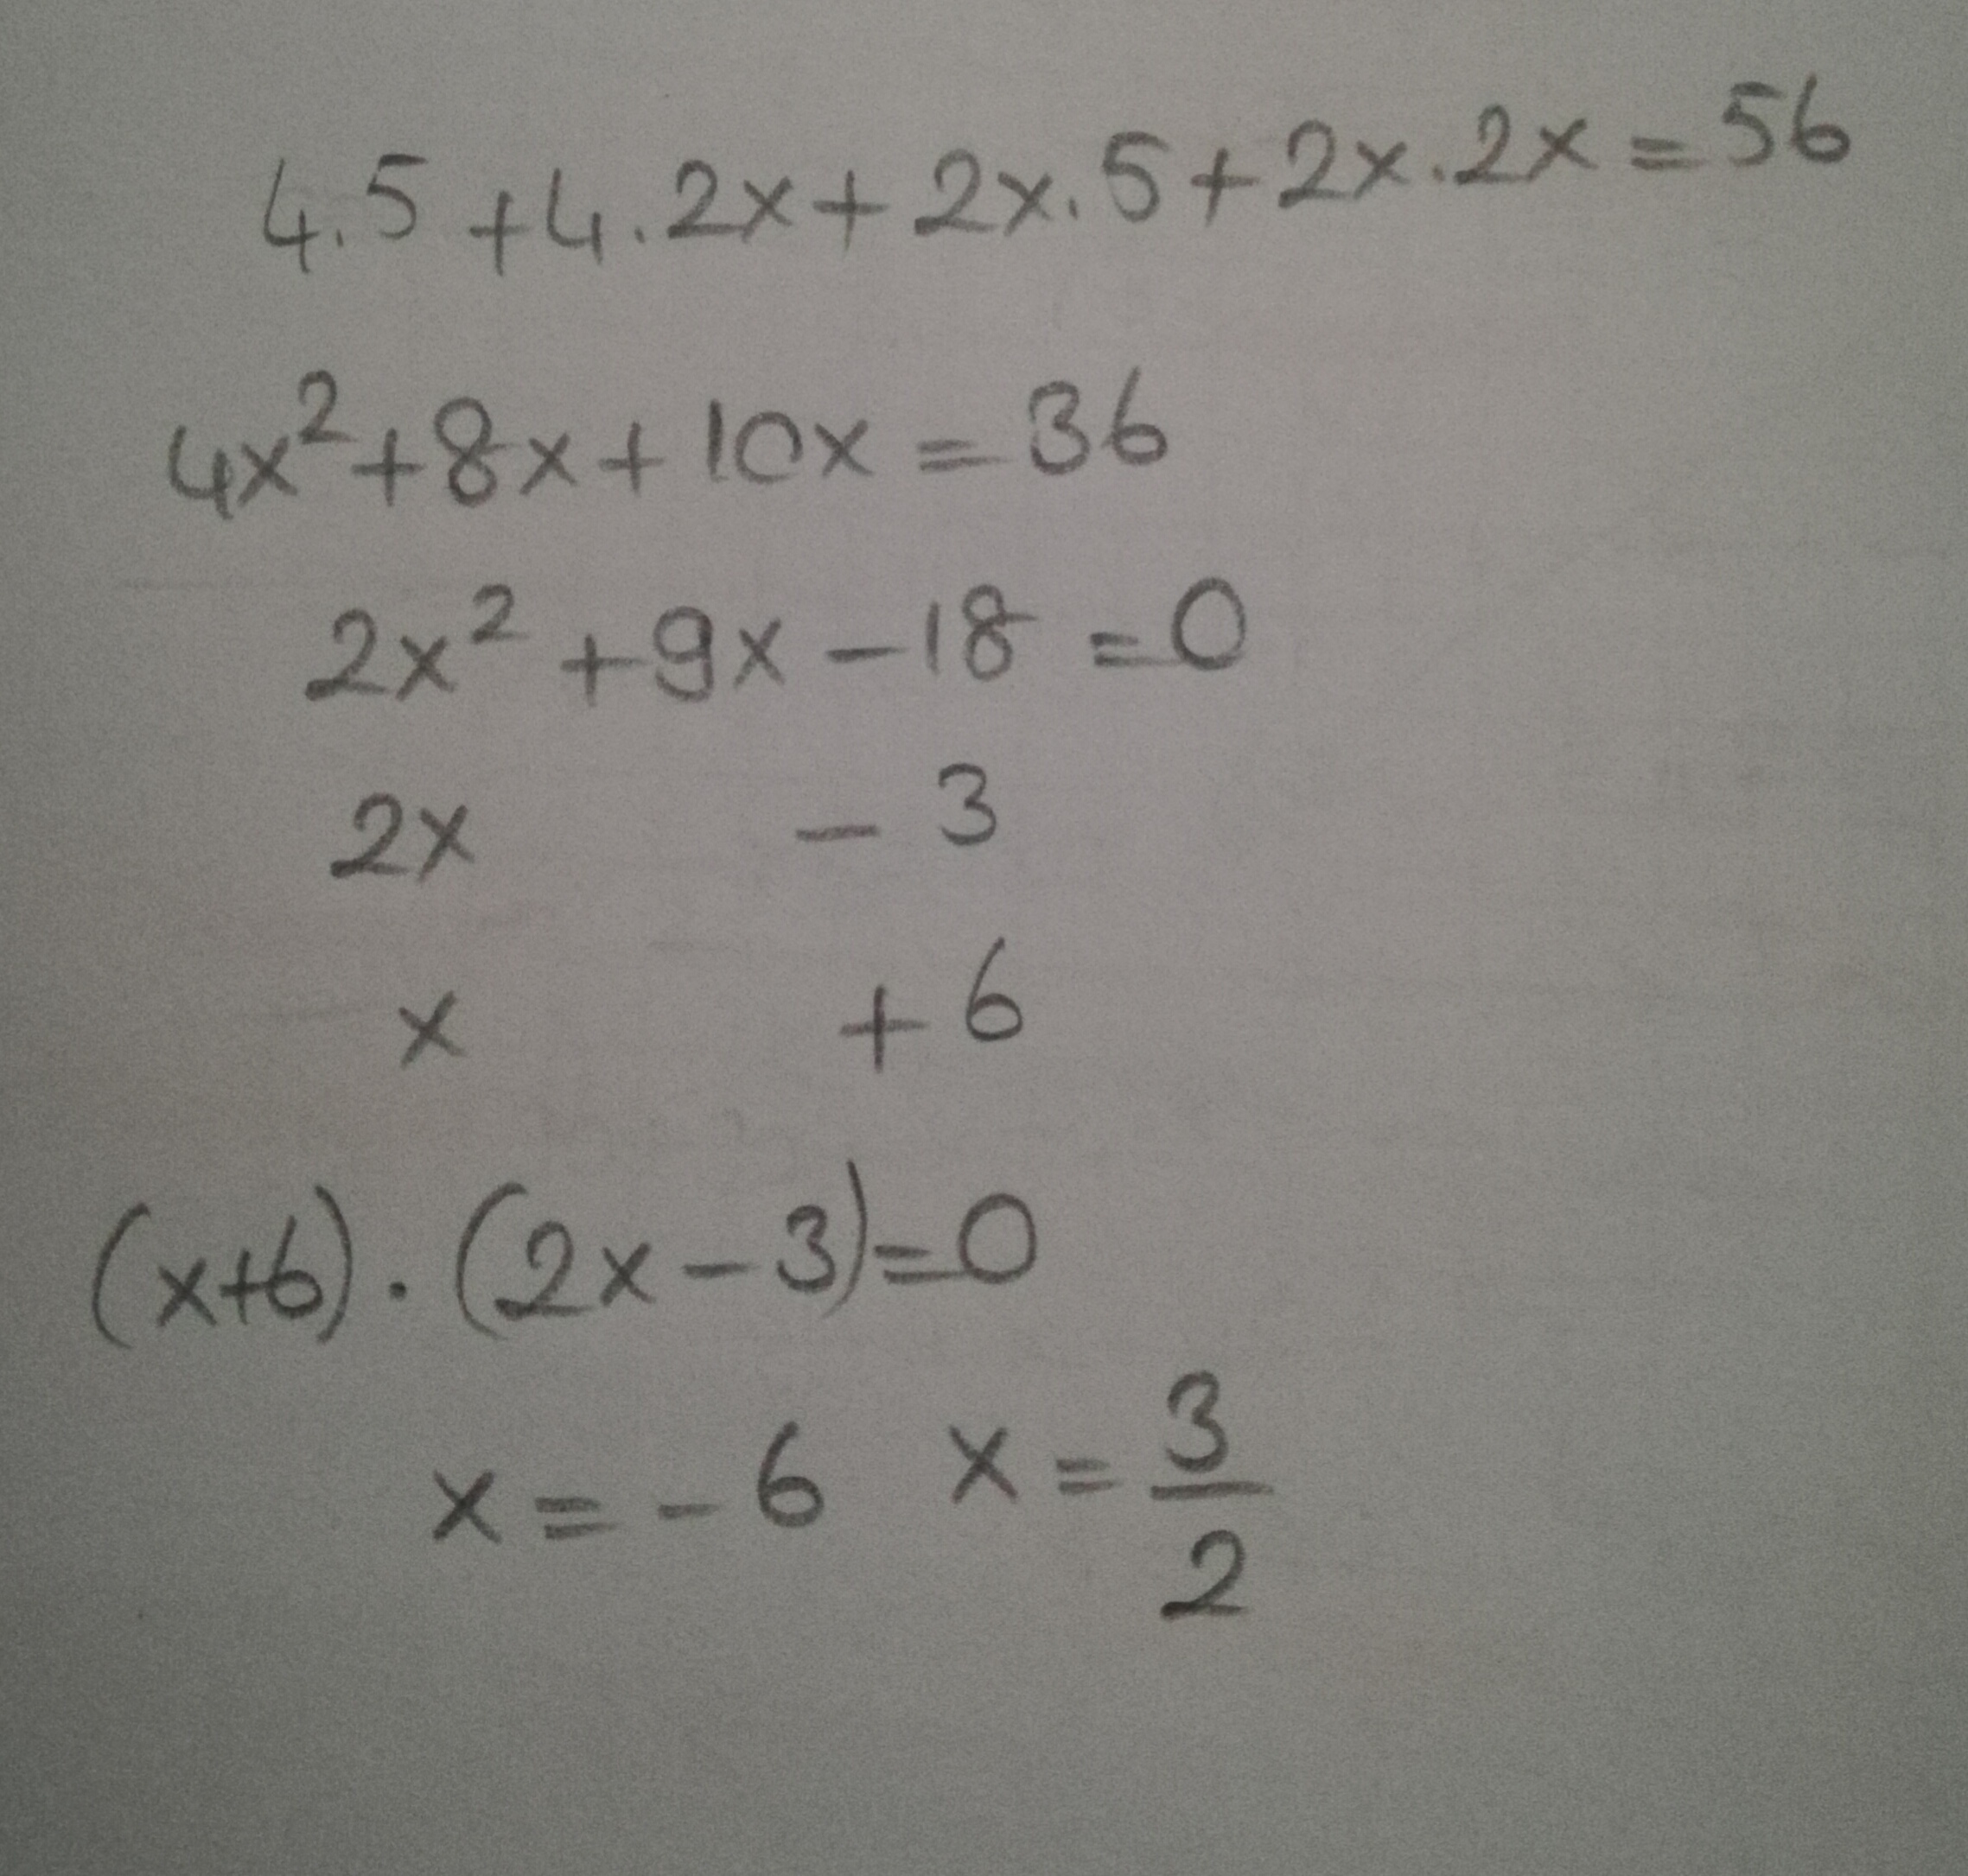 4.5+4.2x+2x.5+2x.2x=56
4x²+8x+10x=36
2x²+9x-18=0
2x -3
x +6
(x+6).(2x-3)=0
x=-6 x=3/2